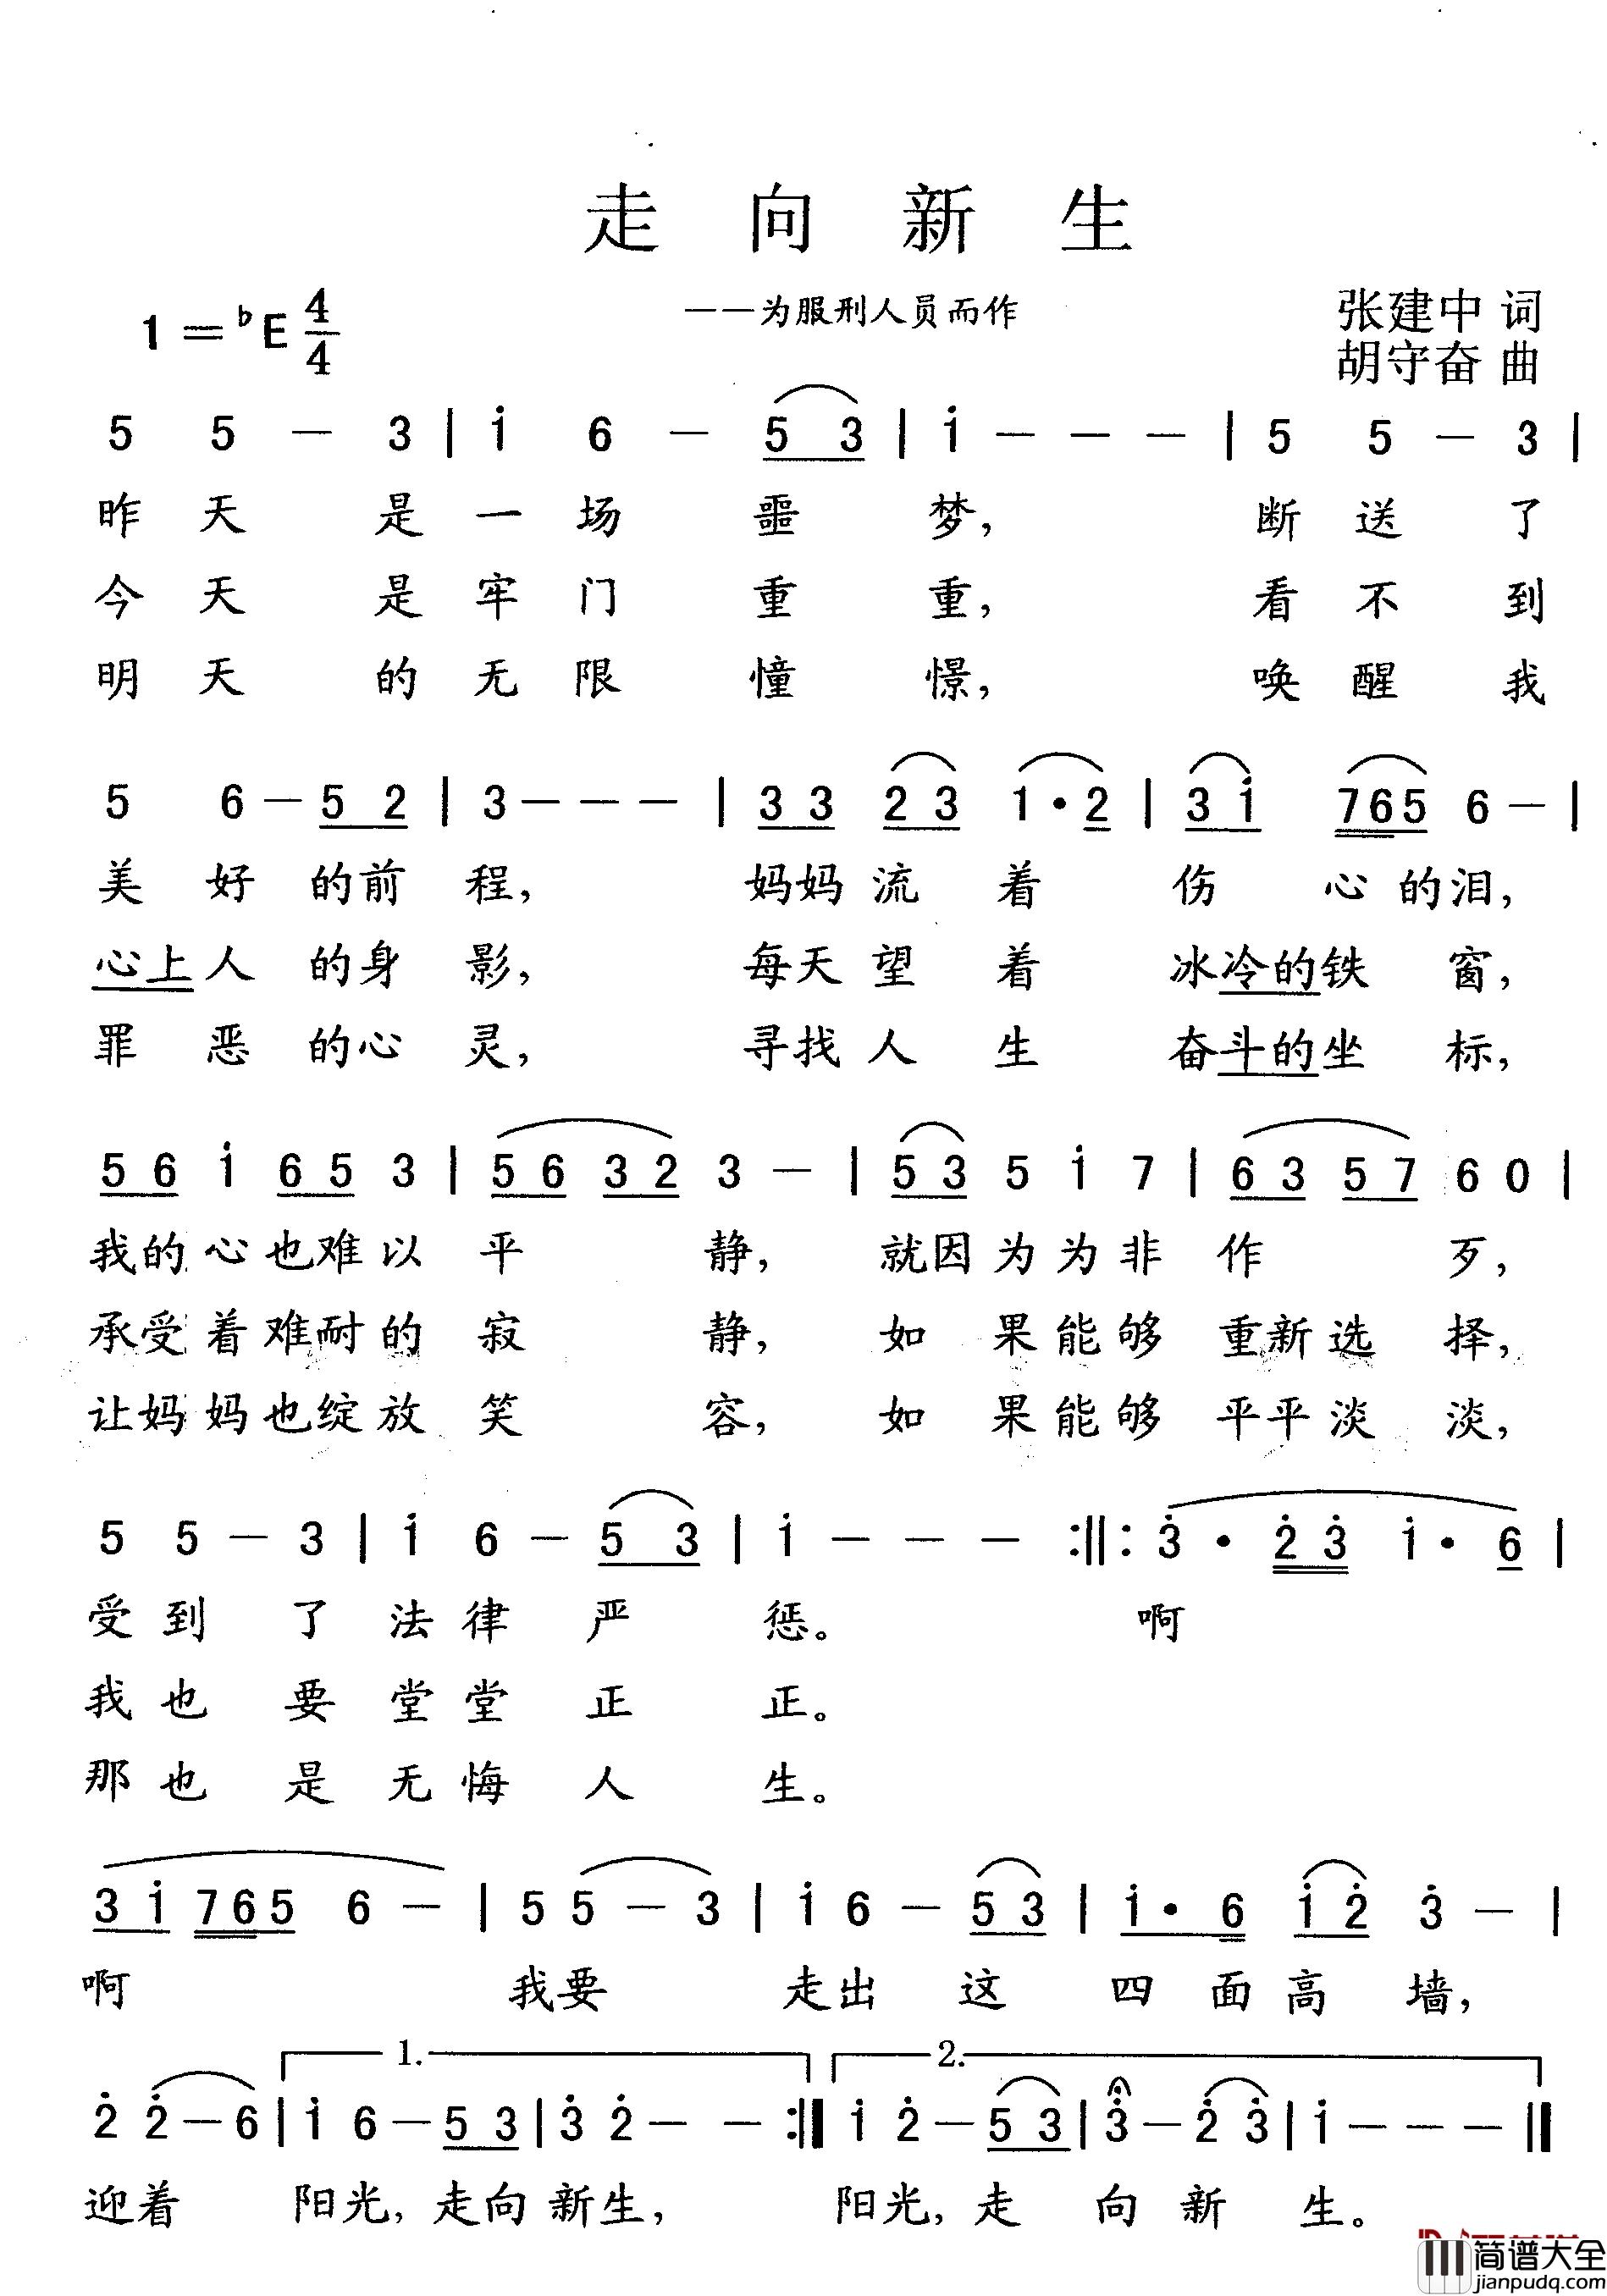 走向新生
——为服刑人员而作
1=♭E 4/4
张建中 词
胡守奋 曲
5 5 — 3 | i 6 — 5 3 | i — — — | 5 5 — 3 |
昨天是一场噩梦, 断送了
今天是牢门重重, 看不到
明天的无限憧憬, 唤醒我
5 6 — 5 2 | 3 — — — | 3 3 2 3 1 · 2 | 3 i 7 6 5 6 — |
美好的前程, 妈妈流着伤心的泪,
心上人的身影, 每天望着冰冷的铁窗,
罪恶的心灵, 寻找人生奋斗的坐标,
5 6 i 6 5 3 | 5 6 3 2 3 — | 5 3 5 i 7 | 6 3 5 7 6 0 |
我的心也难以平静, 就因为为非作歹,
承受着难耐的寂静, 如果能够重新选择,
让妈妈也绽放笑容, 如果能够平平淡淡,
5 5 — 3 | i 6 — 5 3 | i — — — :||: 3 · 2 3 i · 6 |
受到了法律严惩。 啊
我也要堂堂正正。
那也是无悔人生。
3 i 7 6 5 6 — | 5 5 — 3 | i 6 — 5 3 | i · 6 i 2 3 — |
啊 我要走出这四面高墙,
1. 2.
2 2 — 6 | i 6 — 5 3 | 3 2 — — :|| i 2 — 5 3 | 3 — 2 3 | i — — — ||
迎着阳光, 走向新生, 阳光, 走向新生。
简谱大全
jianpudq.com